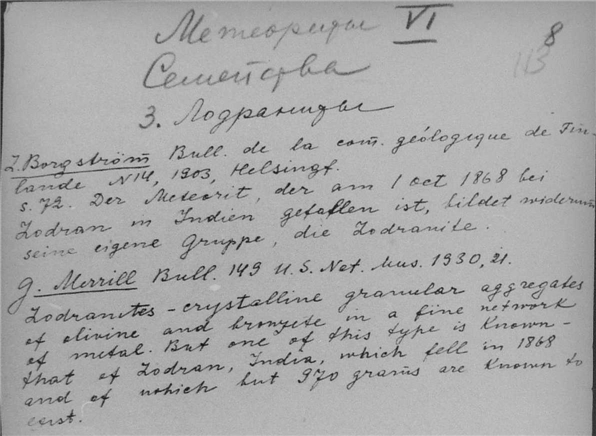 Метеориты VI
8
113
Семейства
3. Лодраниты
L. Borgström Bull. de la com. géologique de Fin-
lande N14, 1903, Helsingf.
s. 72. Der Meteorit, der am 1 oct 1868 bei
Lodran in Indien gefallen ist, bildet widerum
seine eigene Gruppe, die Lodranite.
G. Merrill Bull. 149 U.S. Nat. Mus. 1930, 21.
Lodranites - crystalline granular aggregates
of olivine and bronzite in a fine network
of metal. But one of this type is known -
that of Lodran, India, which fell in 1868
and of which but 970 grams are known to
exist.